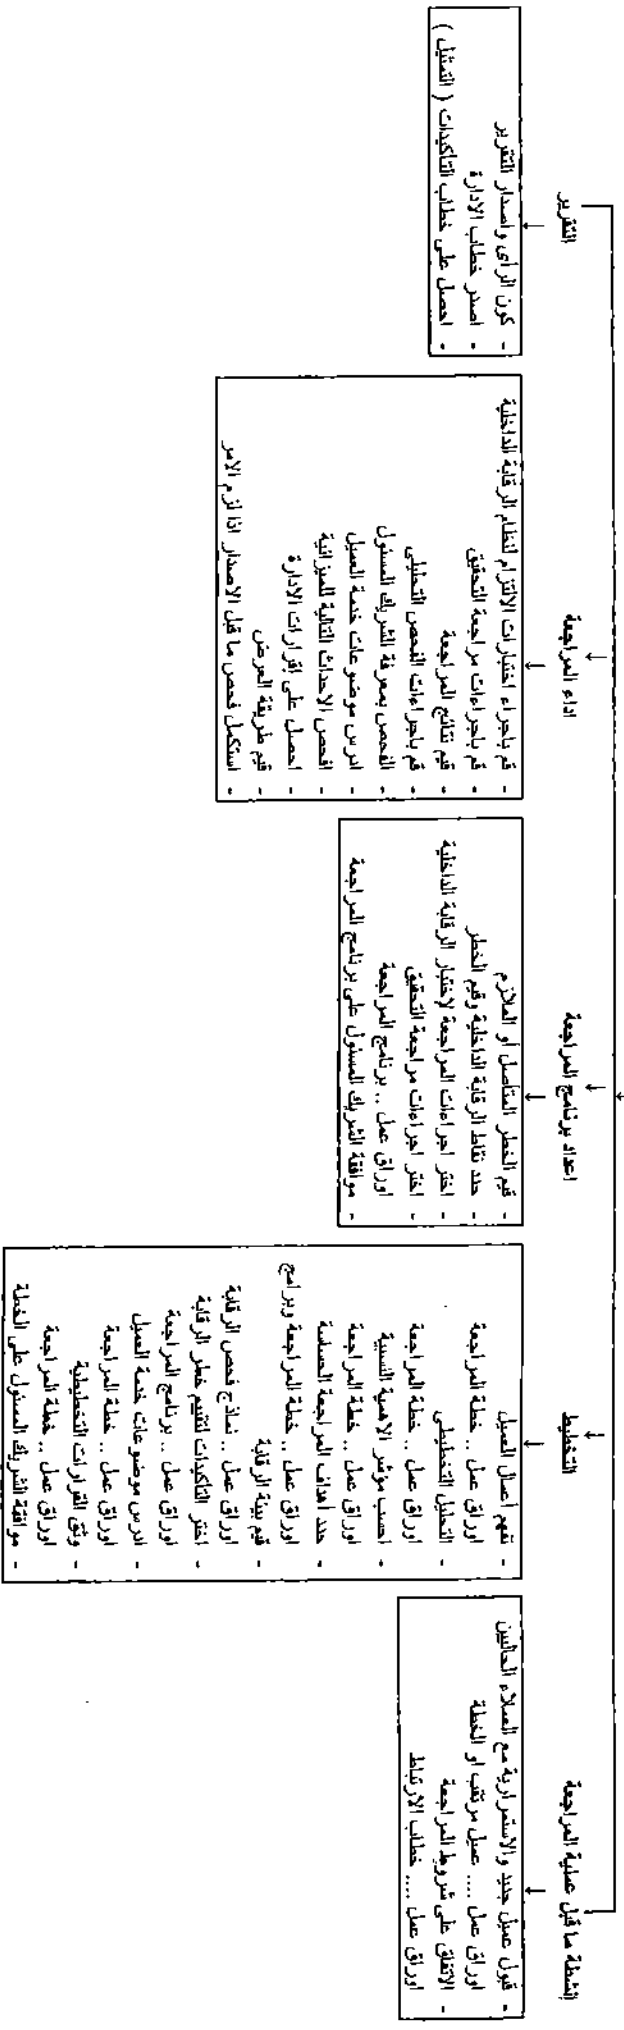 أنشطة ما قبل عملية المراجعة
- قبول عميل جديد والاستمرارية مع العملاء الحاليين
اوراق عمل .... عميل مرتقب او الخطة
- الاتفاق على شروط المراجعة
اوراق عمل .... خطاب الارتباط
التخطيط
- تفهم أعمال العميل
اوراق عمل .. خطة المراجعة
- التحليل التخطيطى
اوراق عمل .. خطة المراجعة
- احسب مؤشر الاهمية النسبية
اوراق عمل .. خطة المراجعة
- حدد أهداف المراجعة الحساسة
اوراق عمل .. خطة المراجعة وبرامج
- قيم بيئة الرقابة
اوراق عمل .. نماذج فحص الرقابة
- اختر التأكيدات لتقييم خطر الرقابة
اوراق عمل .. برنامج المراجعة
- ادرس موضوعات خدمة العميل
اوراق عمل .. خطة المراجعة
- وثق القرارات التخطيطية
اوراق عمل .. خطة المراجعة
- موافقة الشريك المسئول على الخطة
اعداد برنامج المراجعة
- قيم الخطر المتأصل أو الملازم
- حدد نقاط الرقابة الداخلية وقيم الخطر
- اختر اجراءات المراجعة لإختبار الرقابة الداخلية
- اختر اجراءات مراجعة التحقيق
اوراق عمل .. برنامج المراجعة
- موافقة الشريك المسئول على برنامج المراجعة
اداء المراجعة
- قم باجراء اختبارات الالتزام لنظام الرقابة الداخلية
- قم باجراءات مراجعة التحقيق
- قيم نتائج المراجعة
- قم باجراءات الفحص التحليلى
- الفحص بمعرفة الشريك المسئول
- ادرس موضوعات خدمة العميل
- افحص الاحداث التالية للميزانية
- احصل على إقرارات الادارة
- قيم طريقة العرض
- استكمل فحص ما قبل الاصدار اذا لزم الامر
التقرير
- كون الرأى واصدار التقرير
- اصدر خطاب الادارة
- احصل على خطاب التأكيدات ( التمثيل )